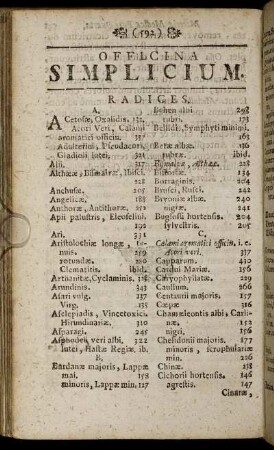 (592)
OFFICINA
SIMPLICIUM.
RADICES.
A.
Acetosæ, Oxalidis, 132.
Acori Veri, Calami
aromatici officin. 317
Adulterini, Pseudacori,
Gladioli lutei, 321
Allii. 317
Althææ, Bismalvæ, Ibisci.
128
Anchusæ. 205
Angelicæ. 188
Anthoræ, Antithoræ. 191
Apii palustris, Eleoselini.
192
Ari. 331
Aristolochiæ longæ, 10-
nus. 259
rotundæ. 260
Clematitis. ibid.
Arthanitæ, Cyclaminis. 138
Arundinis. 343
Asari vulg. 237
Virg. 138
Asclepiadis, Vincetoxici.
Hirundinariæ. 230
Asparagi. 245
Asphodeli veri albi. 322
lutei, Hastæ Regiæ. ib.
B.
Bardanæ majoris, Lappæ
mai. 158
minoris, Lappæ min. 127
Behen albi 248
rubri. 173
Bellidis, Symphyti minimi.
163
Betæ albæ. 136
rubræ. ibid.
Bismalvæ, Althææ. 128
Bistortæ. 134
Borraginis. 204
Brusci, Rusci. 242
Bryoniæ albæ 241
nigræ. 243
Buglossi hortensis. 204
sylvestris. 205
C.
Calami aromatici officin. i. e.
Acori veri. 337
Capparum. 430
Cardui Mariæ. 156
Caryophyllatæ. 291
Caulium. 266
Centaurii majoris. 157
Cepæ. 316
Chamæleontis albi, Carli-
næ. 150
nigri. 156
Chelidonii majoris. 153
minoris, scrophulariæ
min. 226
Chinæ. 158
Cichorii hortensis. 146
agrestis. 147
Cinaræ,